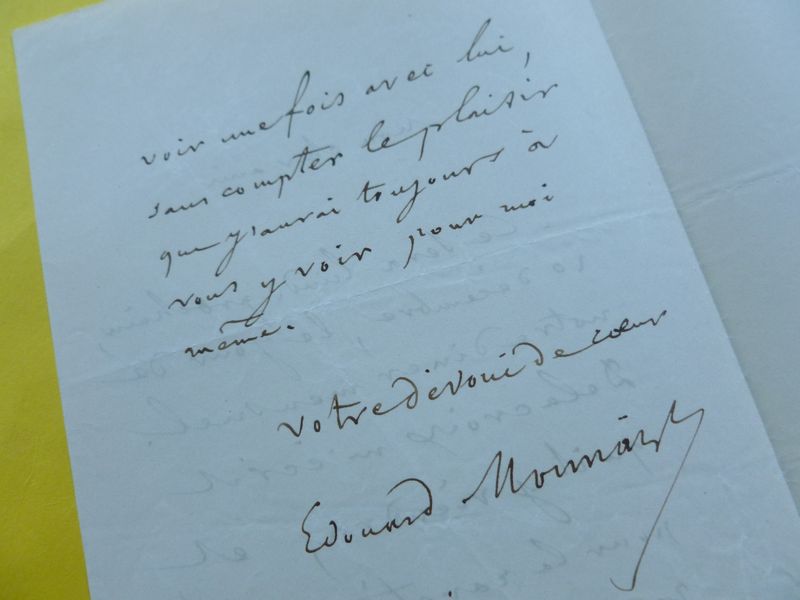 voir une fois avec lui,
sans compter le plaisir
que j'aurai toujours à
vous y voir pour moi
même.
votre dévoué de cœur
Edouard